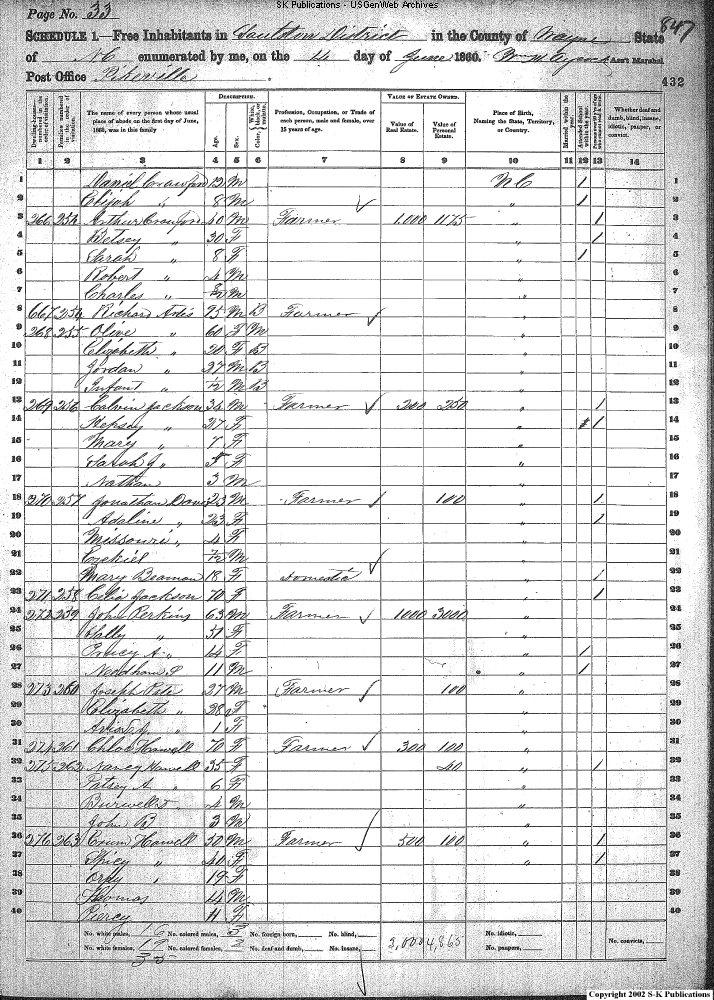 SK Publications - USGenWeb Archives
Page No. 33
847
SCHEDULE 1.—Free Inhabitants in Saulston District in the County of Wayne State
of NC enumerated by me, on the 4 day of June 1860. Ass't Marshal
Post Office Pikeville
432
Dwelling-houses numbered in the order of visitation. Families numbered in the order of visitation. The name of every person whose usual place of abode on the first day of June, 1860, was in this family DESCRIPTION. Age. Sex. Color, White, black, or mulatto. Profession, Occupation, or Trade of each person, male and female, over 15 years of age. VALUE OF ESTATE OWNED. Value of Real Estate. Value of Personal Estate. Place of Birth, Naming the State, Territory, or Country. Married within the year. Attended School within the year. Whether deaf and dumb, blind, insane, idiotic, pauper, or convict.
1 2 3 4 5 6 7 8 9 10 11 12 13 14
1 Daniel Crawford 12 M NC / 1
2 Elijah " 8 M " / 2
3 266 254 Arthur Crawford 40 M Farmer 1,000 1175 " / 3
4 Betsey " 30 F " / 4
5 Sarah " 8 F " / 5
6 Robert " 4 M " 6
7 Charles " M " 7
8 667 254 Richard Artis 95 M B Farmer " 8
9 268 255 Olive " 60 F M " 9
10 Elizabeth " 20 F B " 10
11 Jordan " 27 M B " 11
12 Infant " 1/2 M B " 12
13 269 256 Calvin Jackson 34 M Farmer 200 250 " / 13
14 Kepsey " 27 F " / 14
15 Mary " 7 F " 15
16 Sarah J " 5 F " 16
17 Nathan 3 M " 17
18 270 257 Jonathan Davis 25 M Farmer 100 " / 18
19 Adaline " 23 F " / 19
20 Missouri " 4 F " 20
21 Ezekiel M " 21
22 Mary Beaman 18 F Domestic " / 22
23 271 258 Celia Jackson 70 F " / 23
24 272 259 John Perkins 63 M Farmer 1000 3000 " 24
25 Sally " 51 F " 25
26 A " 14 F " / 26
27 Needham P 11 M " / 27
28 273 260 Joseph Pate 27 M Farmer 100 " 28
29 Elizabeth " 28 F " 29
30 " 1 F " 30
31 274 261 Chloe Howell 70 F Farmer 300 100 " 31
32 275 262 Nancy Howell 35 F 40 " / 32
33 Patsey A " 6 F " 33
34 Burwell 4 M " 34
35 John B 2 M " 35
36 276 263 Howell 50 M Farmer 500 100 " / 36
37 " 40 F " / 37
38 " 19 F " 38
39 Thomas 14 M " 39
40 Piercy 11 F " 40
No. white males, 16 No. colored males, 3 No. foreign born, No. blind, No. idiotic,
No. white females, 19 No. colored females, 2 No. deaf and dumb, No. insane, 3,000 4,865 No. paupers, No. convicts,
35
Copyright 2002 S-K Publications